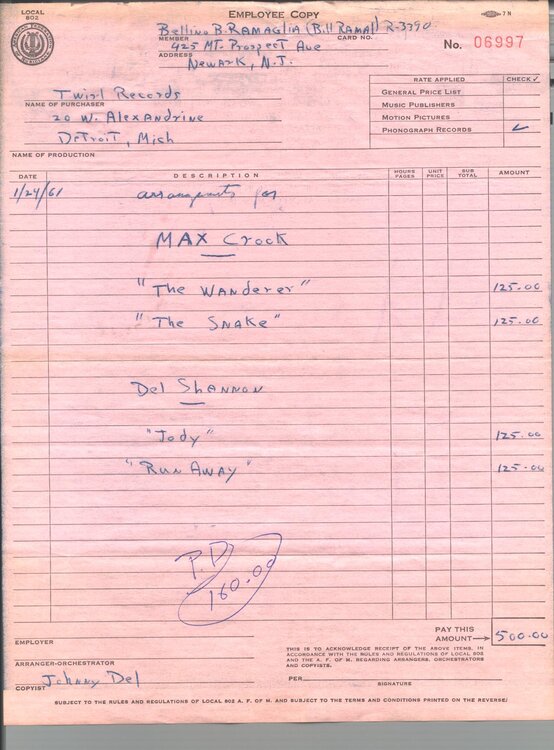 LOCAL
802
EMPLOYEE COPY
7 N
Bellino B. RAMAGLIA (Bill RAMAL) R-3390
MEMBER
CARD NO.
425 MT. Prospect Ave
ADDRESS
Newark, N.J.
No. 06997
RATE APPLIED CHECK ✓
GENERAL PRICE LIST
MUSIC PUBLISHERS
MOTION PICTURES
PHONOGRAPH RECORDS ✓
Twirl Records
NAME OF PURCHASER
20 W. Alexandrine
Detroit, Mich
NAME OF PRODUCTION
DATE DESCRIPTION HOURS PAGES UNIT PRICE SUB TOTAL AMOUNT
1/24/61 arrangements for
MAX Crook
"The WANDERER" 125.00
"The SNAKE" 125.00
Del SHANNON
"Jody" 125.00
"RUN AWAY" 125.00
P.D
160.00
PAY THIS
AMOUNT → 500.00
EMPLOYER
THIS IS TO ACKNOWLEDGE RECEIPT OF THE ABOVE ITEMS, IN
ACCORDANCE WITH THE RULES AND REGULATIONS OF LOCAL 802
AND THE A. F. OF M. REGARDING ARRANGERS, ORCHESTRATORS
AND COPYISTS.
ARRANGER-ORCHESTRATOR
Johnny Del
COPYIST
PER
SIGNATURE
SUBJECT TO THE RULES AND REGULATIONS OF LOCAL 802 A. F. OF M. AND SUBJECT TO THE TERMS AND CONDITIONS PRINTED ON THE REVERSE